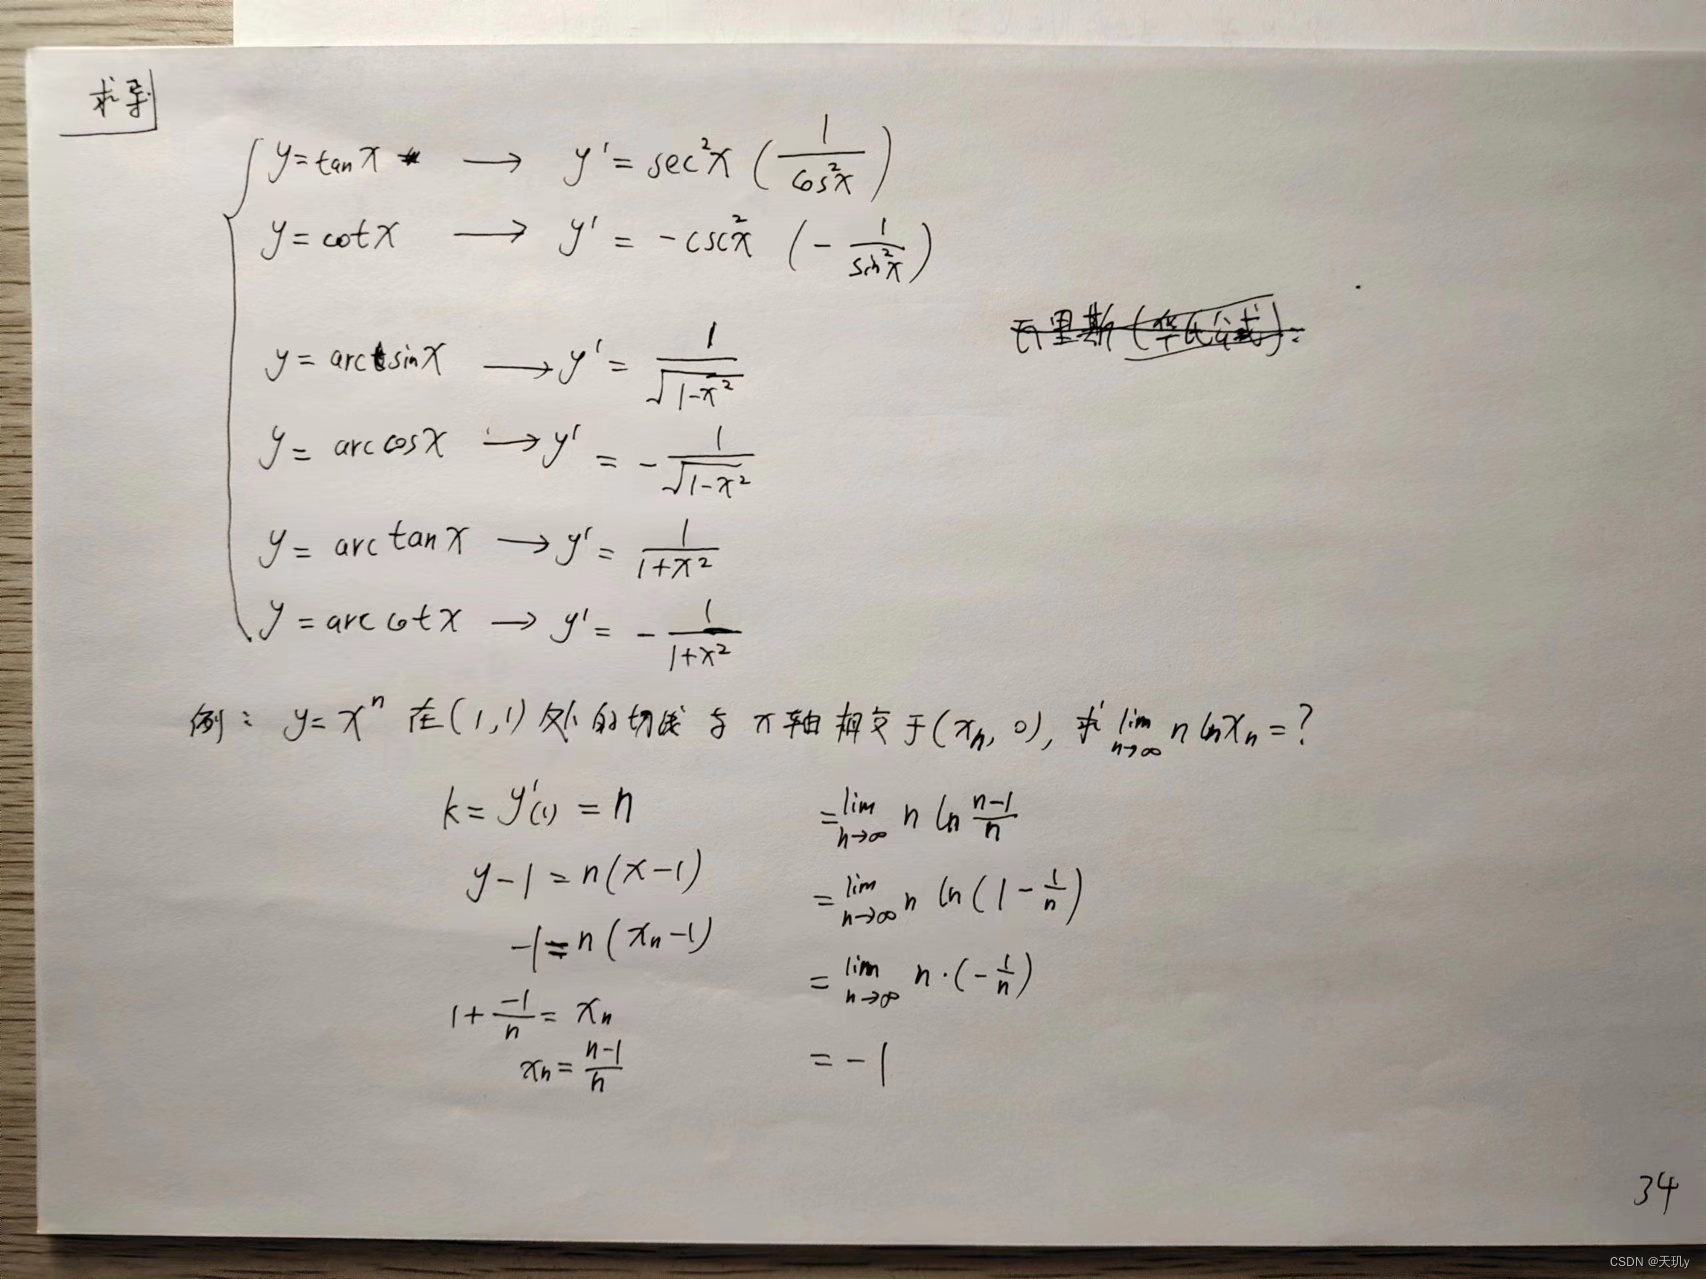 求导
y=tanx → y'=sec²x (1/cos²x)
y=cotx → y'=-csc²x (-1/sin²x)
瓦里斯(华氏公式):
y=arcsinx → y'=1/√(1-x²)
y=arccosx → y'=-1/√(1-x²)
y=arctanx → y'=1/(1+x²)
y=arccotx → y'=-1/(1+x²)
例: y=xⁿ 在(1,1)处的切线与x轴相交于(xₙ,0), 求 lim n→∞ n lnxₙ=?
k=y'(1)=n
y-1=n(x-1)
-1=n(xₙ-1)
1+(-1/n)=xₙ
xₙ=(n-1)/n
=lim n→∞ n ln (n-1)/n
=lim n→∞ n ln(1-1/n)
=lim n→∞ n·(-1/n)
=-1
34
CSDN @天玑y